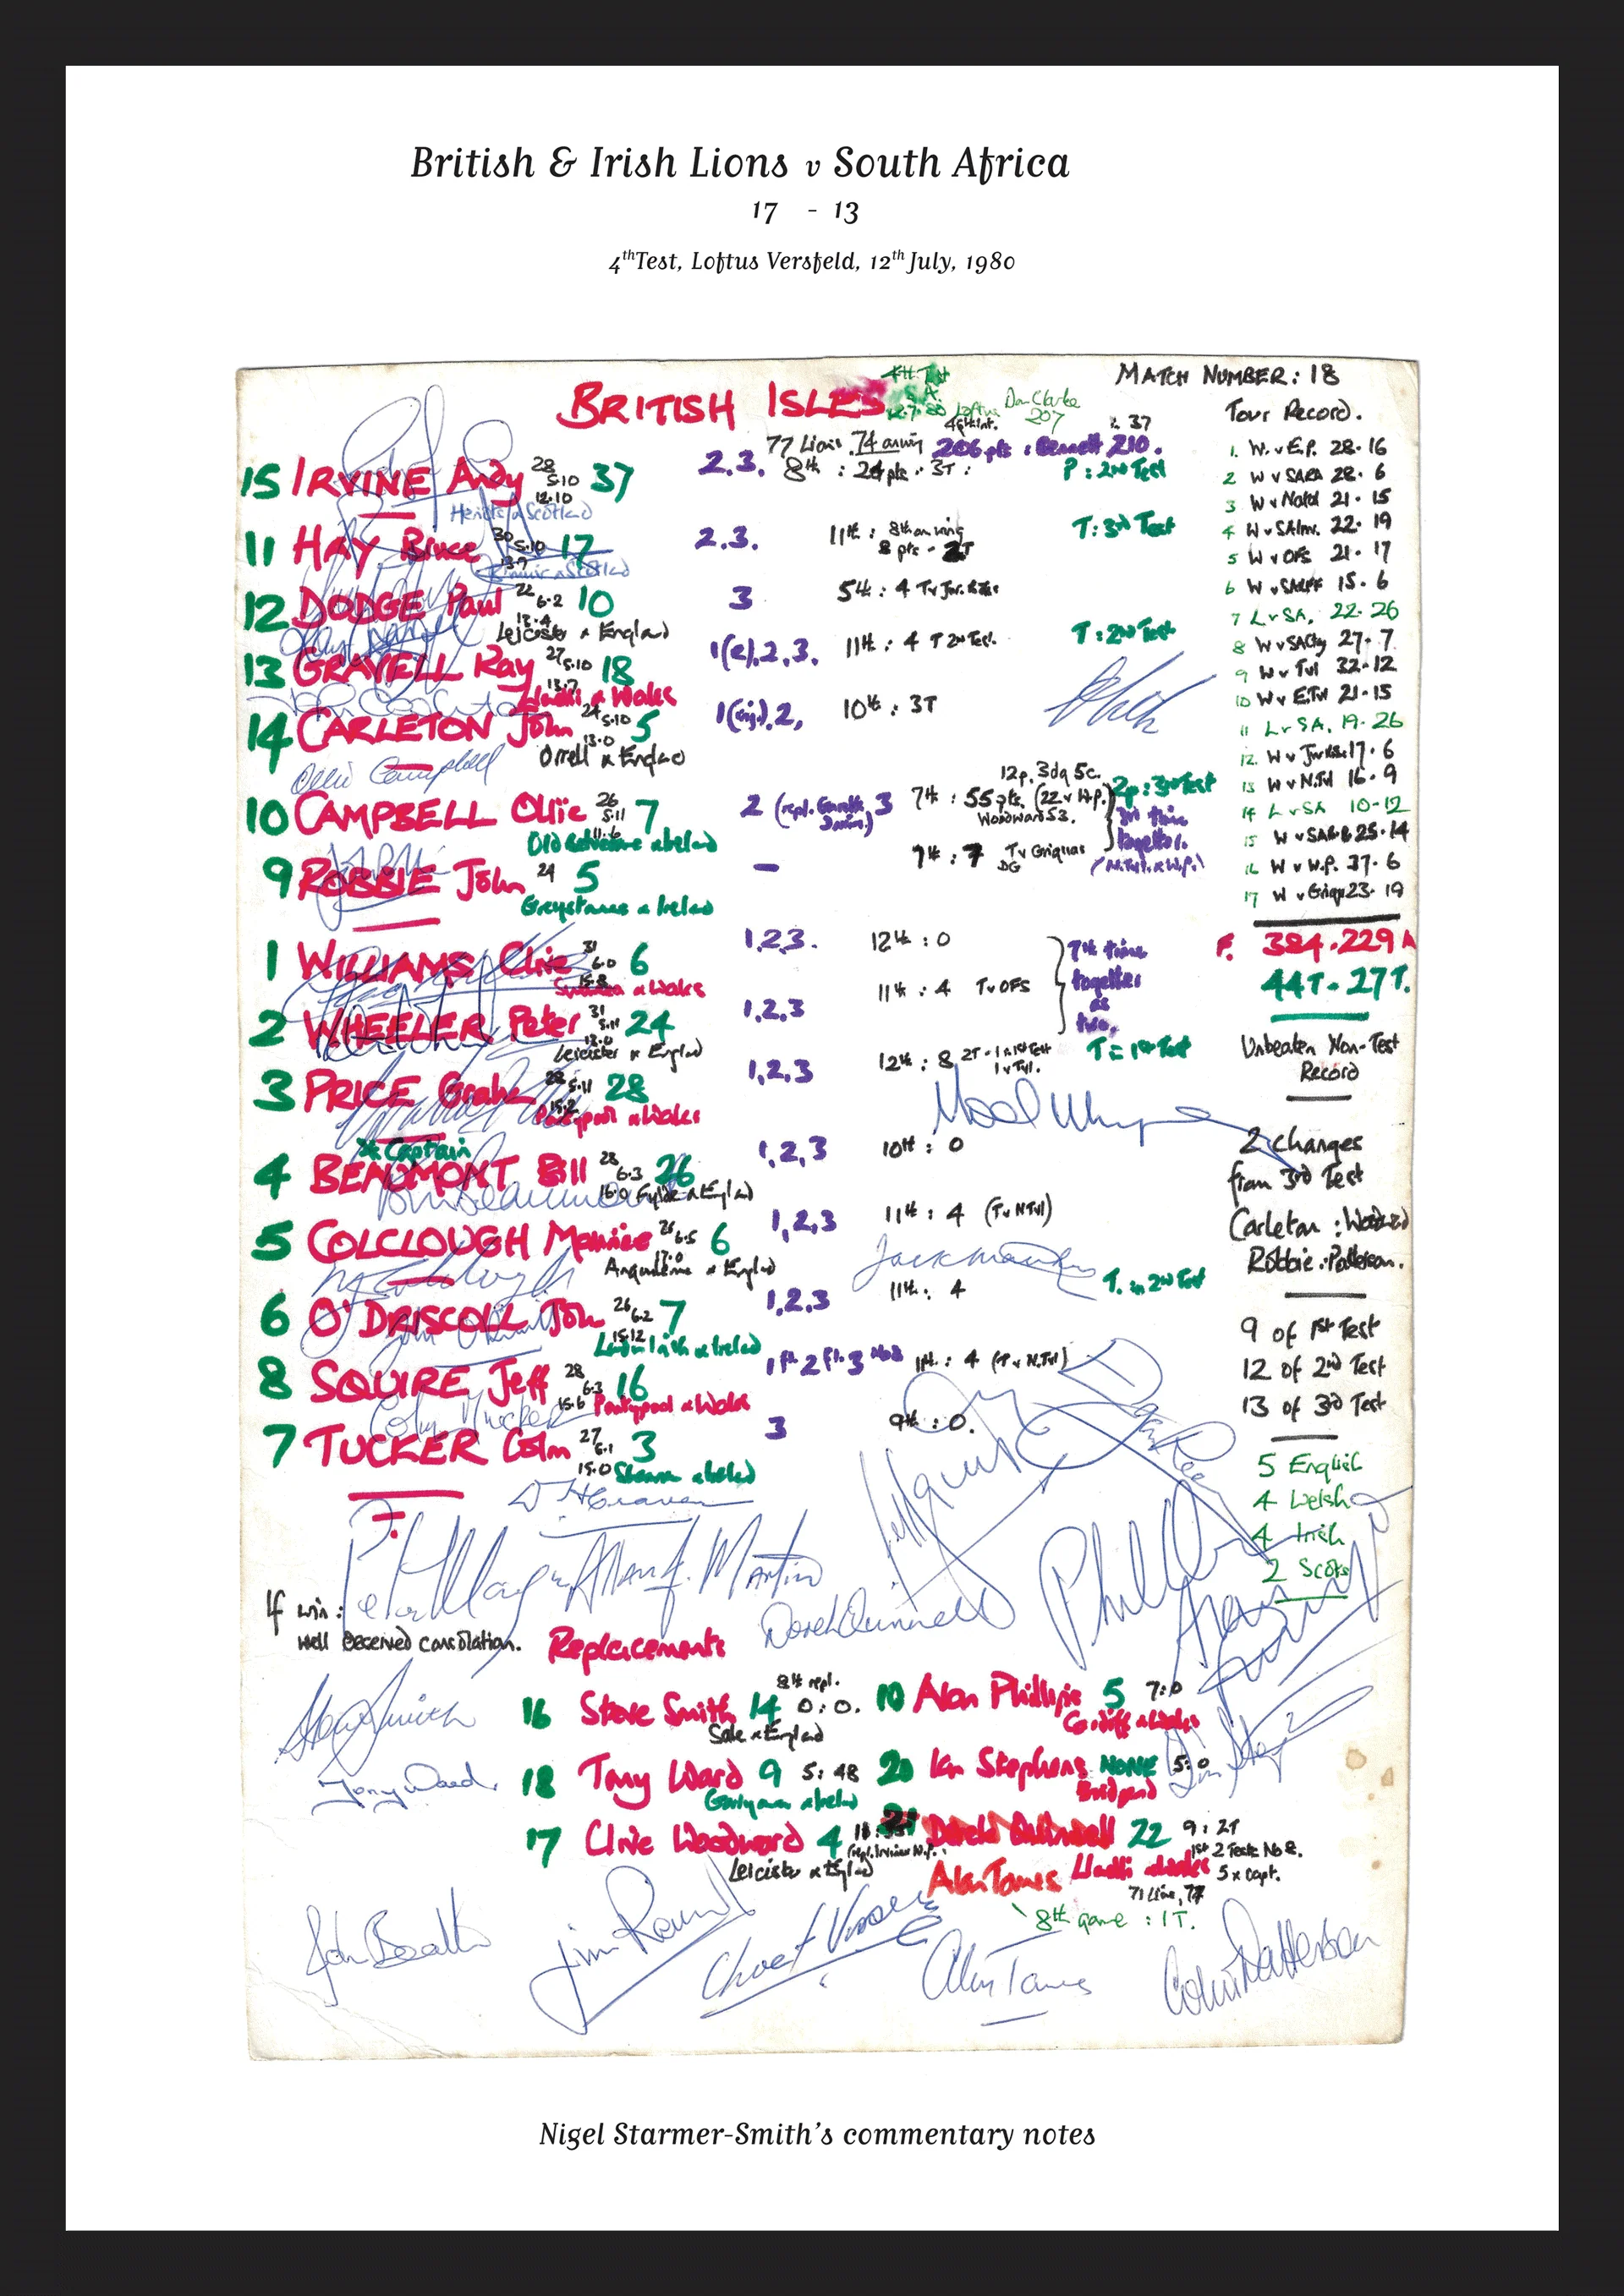 British & Irish Lions v South Africa
17 - 13
4th Test, Loftus Versfeld, 12th July, 1980
MATCH NUMBER: 18
BRITISH ISLES
4th Test
S.A.
12.7.80 Loftus
Don Clarke
207
Tour Record.
77 Lions. 74 206 pts : Bennett 210.
15 IRVINE Andy 28 5.10 12.10 37 2.3. 8th : 24 pts. 3T : P : 2nd Test
Heriots & Scotland
11 HAY Bruce 30 5.10 13.7 17 2.3. 11th : 8th on wing T : 3rd Test
8 pts - 2T
& Scotland
12 DODGE Paul 22 6.2 13.4 10 3 5th : 4 T v
Leicester & England
13 GRAVELL Ray 27 5.10 13.7 18 1(r).2.3. 11th : 4 T 2nd Test. T : 2nd Test
Llanelli & Wales
14 CARLETON John 24 5.10 13.0 5 1(inj.).2, 10th : 3T
Orrell & England
Ollie Campbell
12p. 3dg 5c.
10 CAMPBELL Ollie 26 5.11 11.6 7 2 (repl. Gareth Davies.) 3 7th : 55 pts. (22 v W.P.) 2p : 3rd Test
Woodward 53.
Old Belvedere & Ireland
3rd time together.
(N.Tvl. & W.P.)
9 ROBBIE John 24 5 – 7th : 7 T v Griquas
DG
Greystones & Ireland
1 WILLIAMS Clive 31 6.0 15.8 6 1.2.3. 12th : 0
Swansea & Wales
7th time together as two.
2 WHEELER Peter 31 5.11 13.0 24 1,2,3 11th : 4 T v OFS
Leicester & England
3 PRICE Graham 28 5.11 15.2 28 1,2,3 12th : 8 2T - 1 in 1st Test T = 1st Test
1 v Tvl.
Pontypool & Wales
* Captain
4 BEAUMONT Bill 28 6.3 16.0 26 1,2,3 10th : 0
Fylde & England
5 COLCLOUGH Maurice 26 6.5 17.0 6 1,2,3 11th : 4 (T v N Tvl)
Angouleme & England
6 O'DRISCOLL John 26 6.2 15.12 7 1,2,3 11th : 4 T. in 2nd Test
London Irish & Ireland
8 SQUIRE Jeff 28 6.3 15.6 16 1 Fl. 2 Fl. 3 No8 11th : 4 (T v N.Tvl)
Pontypool & Wales
7 TUCKER Colm 27 6.1 15.0 3 3 9th : 0.
Shannon & Ireland
1. W. v E.P. 28.16
2 W v SARA 28.6
3 W v Natal 21.15
4 W v SA Inv. 22.19
5 W v OFS 21.17
6 W v SARFF 15.6
7 L v SA. 22.26
8 W v SA Cty 27.7
9 W v Tvl 32.12
10 W v E.Tvl 21.15
11 L v SA. 19.26
12. W v 17.6
13 W v N.Tvl 16.9
14 L v SA 10-12
15 W v SAB B 25.14
16 W v W.P. 37.6
17 W v Griqu 23.19
F. 384.229 A
44T - 27T.
Unbeaten Non-Test
Record
2 changes
from 3rd Test
Carleton : Woodward
Robbie : Patterson.
9 of 1st Test
12 of 2nd Test
13 of 3rd Test
5 English
4 Welsh
4 Irish
2 Scots
D H Craven
Derek Quinnell
If win :
well deserved consolation.
Replacements
16 Steve Smith 14 8th repl. 0 : 0.
Sale & England
10 Alan Phillips 5 7:0
Cardiff & Wales
Steve Smith
18 Tony Ward 9 5 : 48
Garryowen & Ireland
20 Ian Stephens NONE 5:0
Bridgend
Tony Ward
17 Clive Woodward 4
Leicester & England
21 Derek Quinnell 22 9 : 2T
1st 2 Tests No 8.
Llanelli & Wales 5 x capt.
71 Lions, 77
Alan Tomes
8th game : 1T.
John Beattie
Alan Tomes
Colin Patterson
Nigel Starmer-Smith's commentary notes